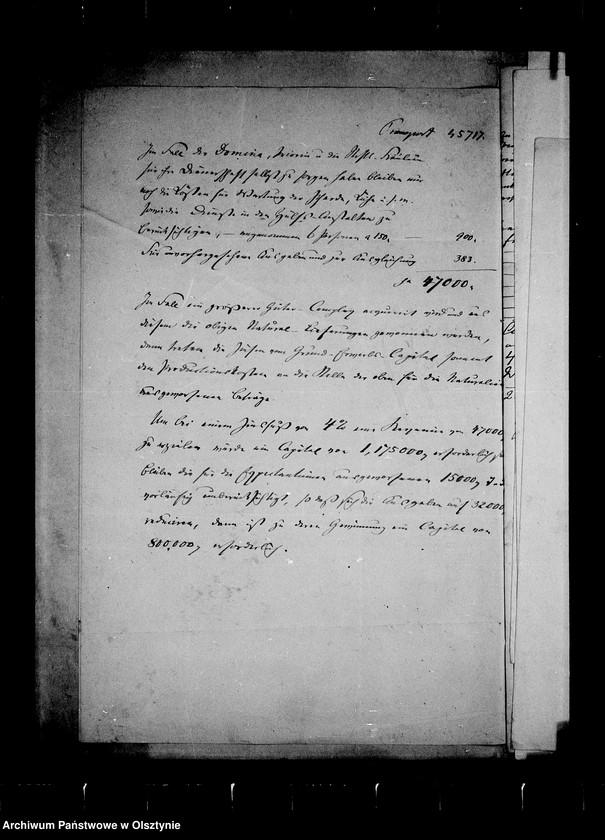 Transport 45717.
Im Fall der Domina, Priorin u die Stifts-Fräulein
für ihre Dienerschaft selbst zu sorgen haben bleiben nur
noch die Kosten für Wartung der Pferde, Kühe u.s.w.
sowie die Dienste in den Hülfs-Anstalten zu
berücksichtigen, — angenommen 6 Personen a 150. — 900.
Für unvorhergesehene Ausgaben und zur Ausgleichung 383.
Sa 47000.
Im Fall ein größerer Güter-Complex acquirirt wird und aus
diesem die obigen Natural-Lieferungen genommen werden,
dann treten die Zinsen vom Grund-Erwerbs-Capital sammt
den Productionskosten an die Stelle der oben für die Naturalien
ausgeworfenen Beträge.
Um bei einem Zinsfuß von 4% eine Revenüe von 47000
zu erzielen würde ein Capital von 1,175000 erforderlich sein
bleiben die für die Expectantinnen ausgeworfenen 15000
vorläufig unberücksichtigt, so daß sich die Ausgaben auf 32000
reduciren, dann ist zu deren Gewinnung ein Capital von
800,000 erforderlich.
Archiwum Państwowe w Olsztynie